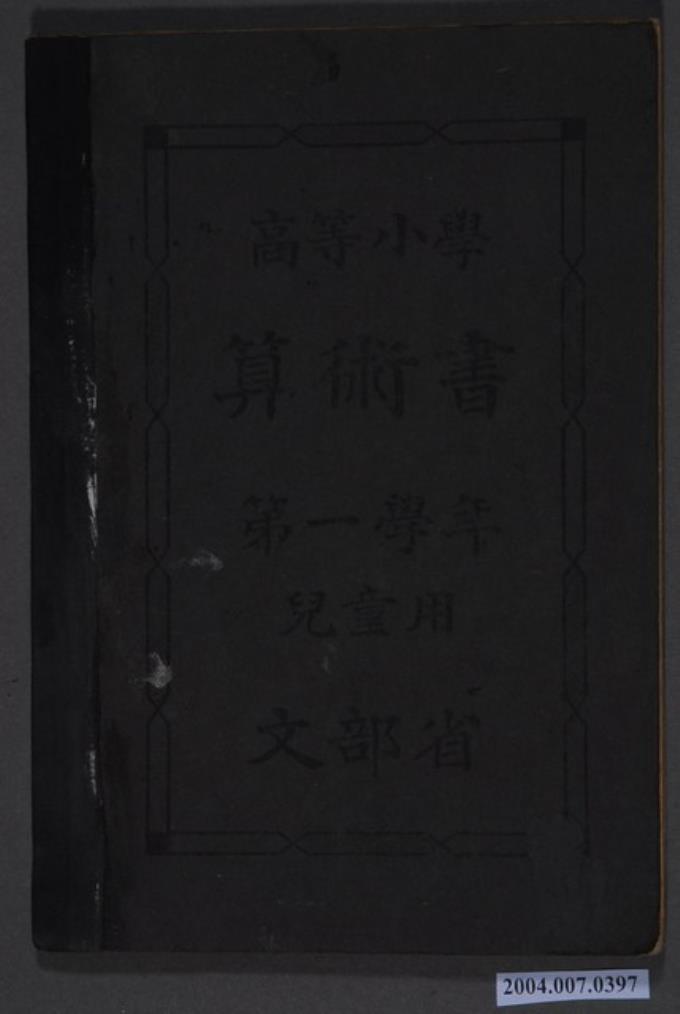 高等小學
算術書
第一學年
兒童用
文部省
2004.007.0397